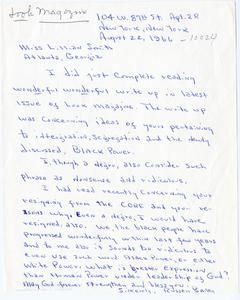 Look Magazine
104 W. 87th St. Apt. 2R
New York, New York
August 22, 1966 - 10024
Miss Lillian Smith
Atlanta, Georgia
I did just complete reading
wonderful wonderful write up in latest
issue of Look Magazine. The write up
was concerning ideas of yours pertaining
to integration, segregation and the
discussed, Black Power.
I, though a negro, also consider such
phrase as nonsense and ridiculous.
I had read recently concerning your
resigning from the CORE and your rea-
sons why. Even a negro, I would have
resigned, also. We, the black people have
progressed wonderfully within last few years
and to me also it sounds be ridiculous to
even use such word Black Power, or either
White Power. What is greater expression
than Human Power under leadership of God?
May God forever strengthen and bless you.
Sincerely,